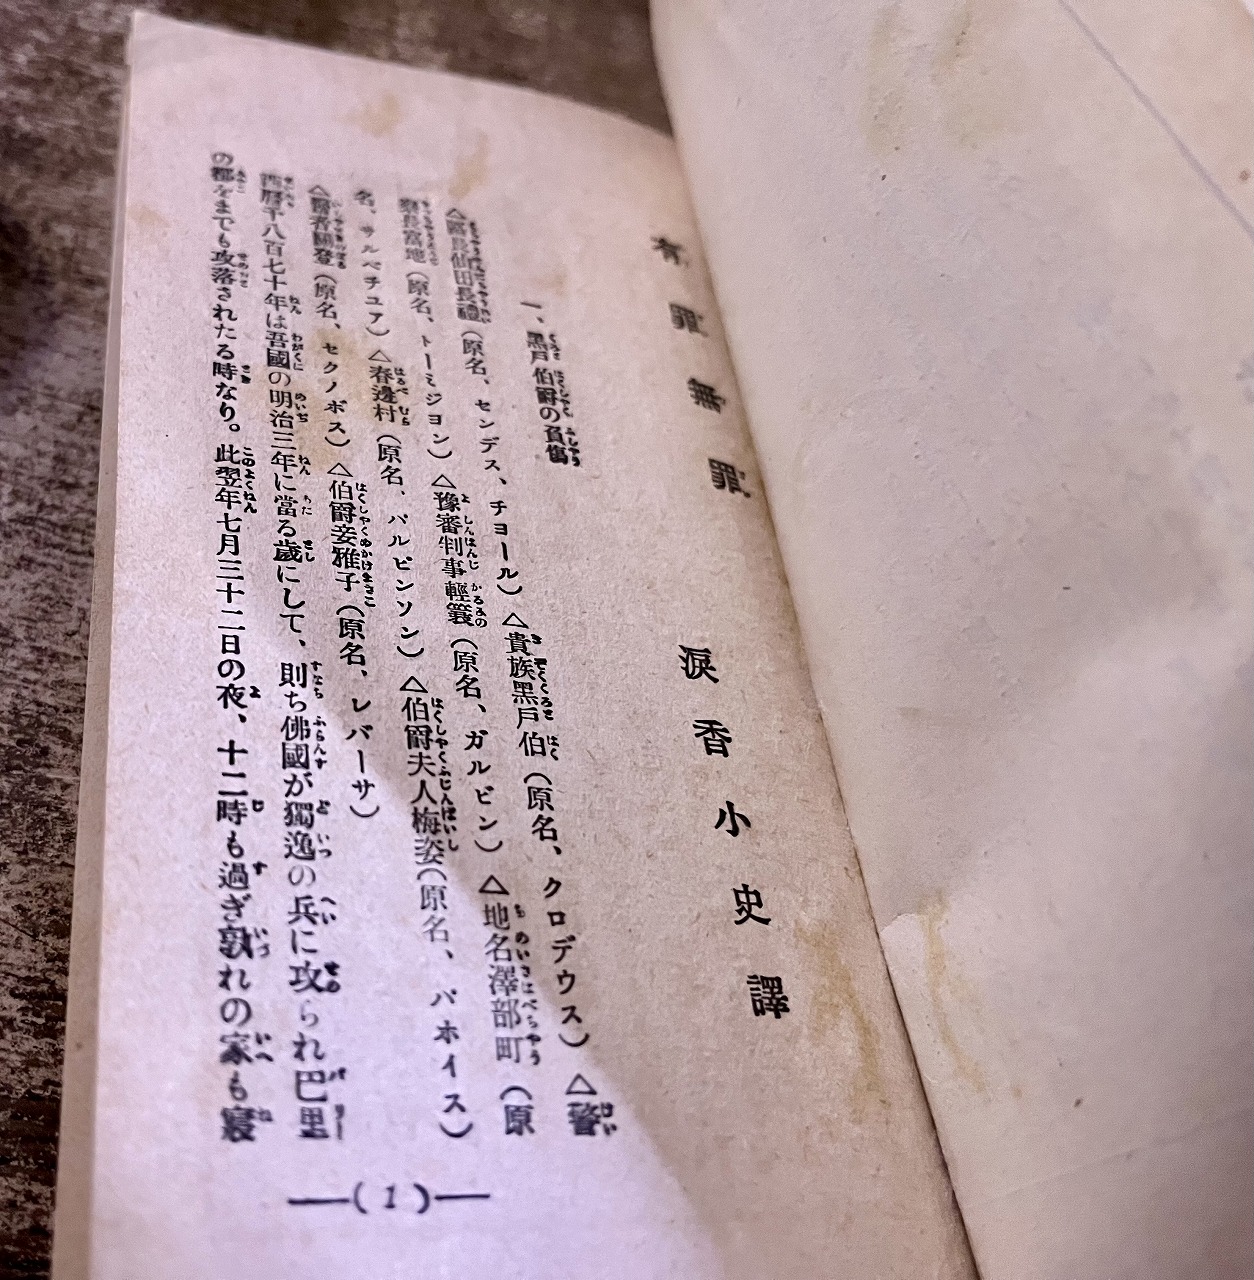 有罪無罪
涙香小史譯
一、黒戸伯爵の負傷
△區長仙田長禮(原名、センデス、チヨール)△貴族黒戸伯(原名、クロデウス)△警
察長富地(原名、トーミジヨン)△豫審判事輕簑(原名、ガルピン)△地名澤部町(原
名、サルベチユア)△春邊村(原名、バルピンソン)△伯爵夫人梅姿(原名、バホイス)
△醫者關登(原名、セクノボス)△伯爵妾雅子(原名、レバーサ)
西暦千八百七十年は吾國の明治三年に當る歳にして、則ち佛國が獨逸の兵に攻られ巴里
の都をまでも攻落されたる時なり。此翌年七月三十二日の夜、十二時も過ぎ孰れの家も寢
(1)